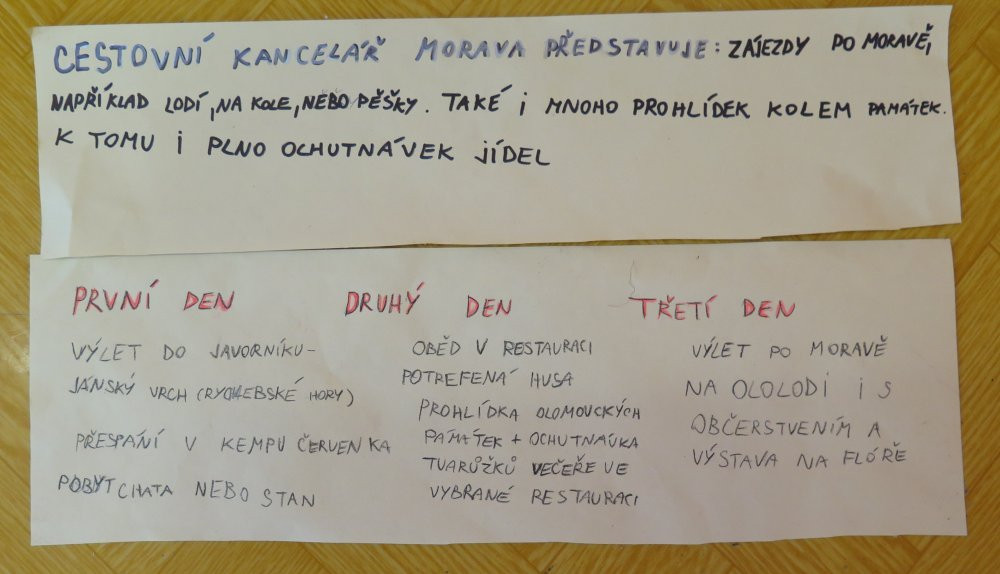 CESTOVNÍ KANCELÁŘ MORAVA PŘEDSTAVUJE: ZÁJEZDY PO MORAVĚ,
NAPŘÍKLAD LODÍ, NA KOLE, NEBO PĚŠKY. TAKÉ I MNOHO PROHLÍDEK KOLEM PAMÁTEK.
K TOMU I PLNO OCHUTNÁVEK JÍDEL
PRVNÍ DEN
VÝLET DO JAVORNÍKU-
JÁNSKÝ VRCH (RYCHLEBSKÉ HORY)
PŘESPÁNÍ V KEMPU ČERVENKA
POBYT CHATA NEBO STAN
DRUHÝ DEN
OBĚD V RESTAURACI
POTREFENÁ HUSA
PROHLÍDKA OLOMOUCKÝCH
PAMÁTEK + OCHUTNAVKA
TVARŮŽKŮ VEČEŘE VE
VYBRANÉ RESTAURACI
TŘETÍ DEN
VÝLET PO MORAVĚ
NA OLOLODI I S
OBČERSTVENÍM A
VÝSTAVA NA FLÓŘE